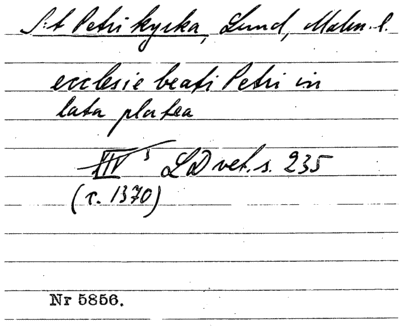 S:t Petri kyrka, Lund, Malm. l.
ecclesie beati Petri in
lata platea
XIV s LD vet. s. 235
(c. 1370)
Nr 5856.